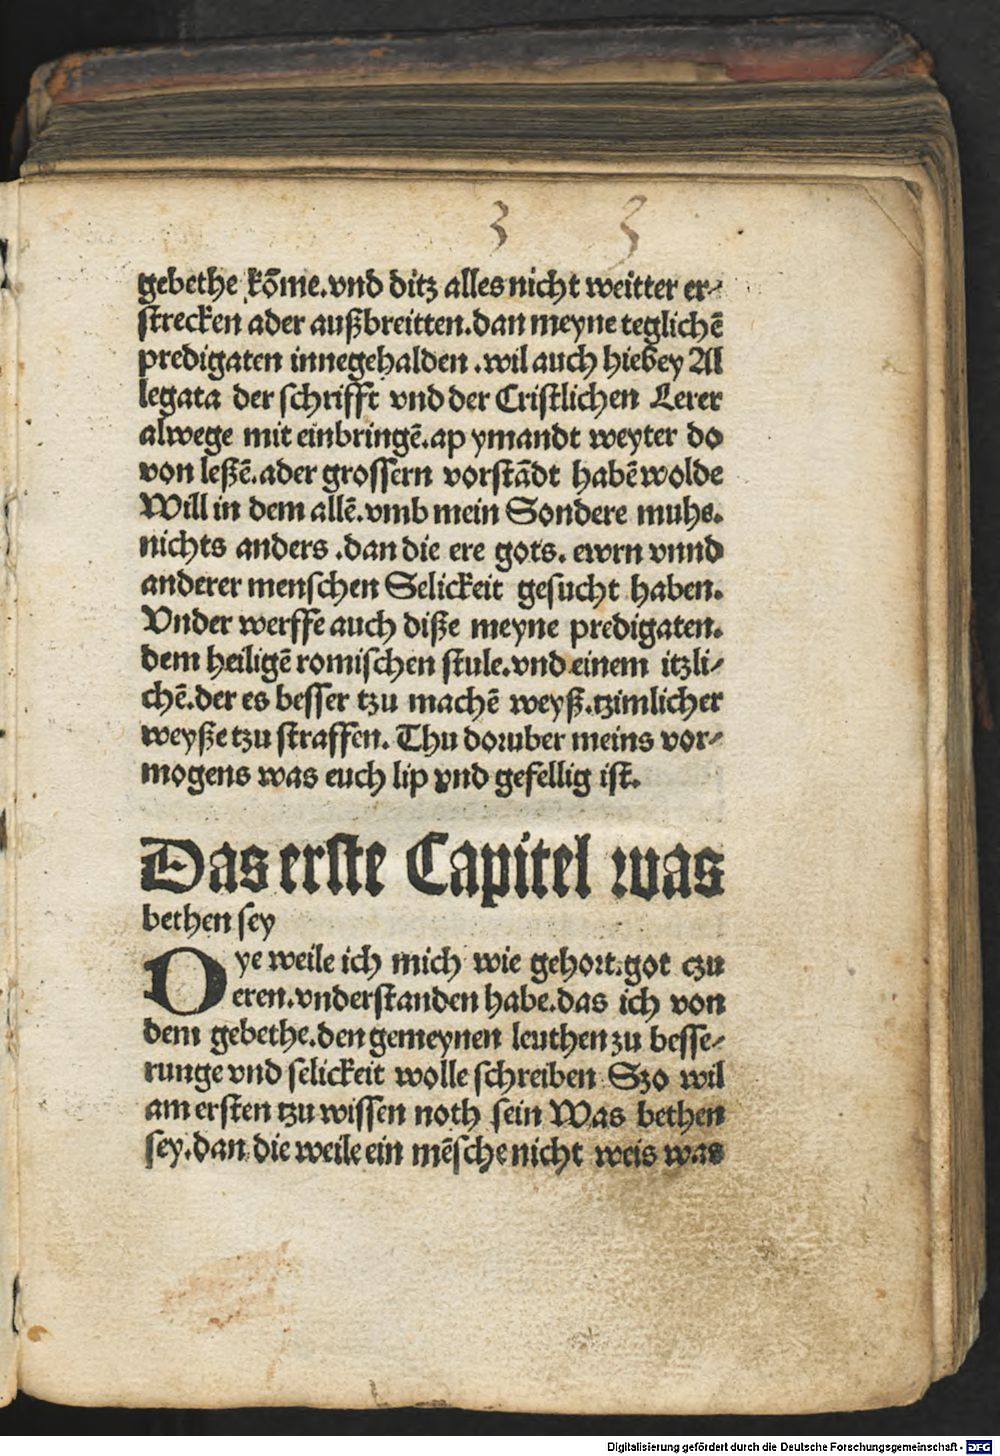 3 3
gebethe kōme.vnd ditz alles nicht weitter er-
strecken ader außbreitten.dan meyne teglichē
predigaten innegehalden .wil auch hiebey Al
legata der schrifft vnd der Cristlichen Lerer
alwege mit einbringē.ap ymandt weyter do
von leßē.ader grossern vorstādt habē wolde
Will in dem allē.vmb mein Sondere muhe.
nichts anders .dan die ere gots. ewrn vnnd
anderer menschen Selickeit gesucht haben.
Vnder werffe auch diße meyne predigaten.
dem heiligē romischen stule.vnd einem itzli-
chē.der es besser tzu machē weyß.tzimlicher
weyße tzu straffen. Thu doruber meins vor-
mogens was euch lip vnd gefellig ist.
Das erste Capitel was
bethen sey
Dye weile ich mich wie gehort.got czu
eren.vnderstanden habe.das ich von
dem gebethe.den gemeynen leuthen zu besse-
runge vnd selickeit wolle schreiben Szo wil
am ersten tzu wissen noth sein Was bethen
sey.dan die weile ein mēsche nicht weis was
Digitalisierung gefördert durch die Deutsche Forschungsgemeinschaft - DFG